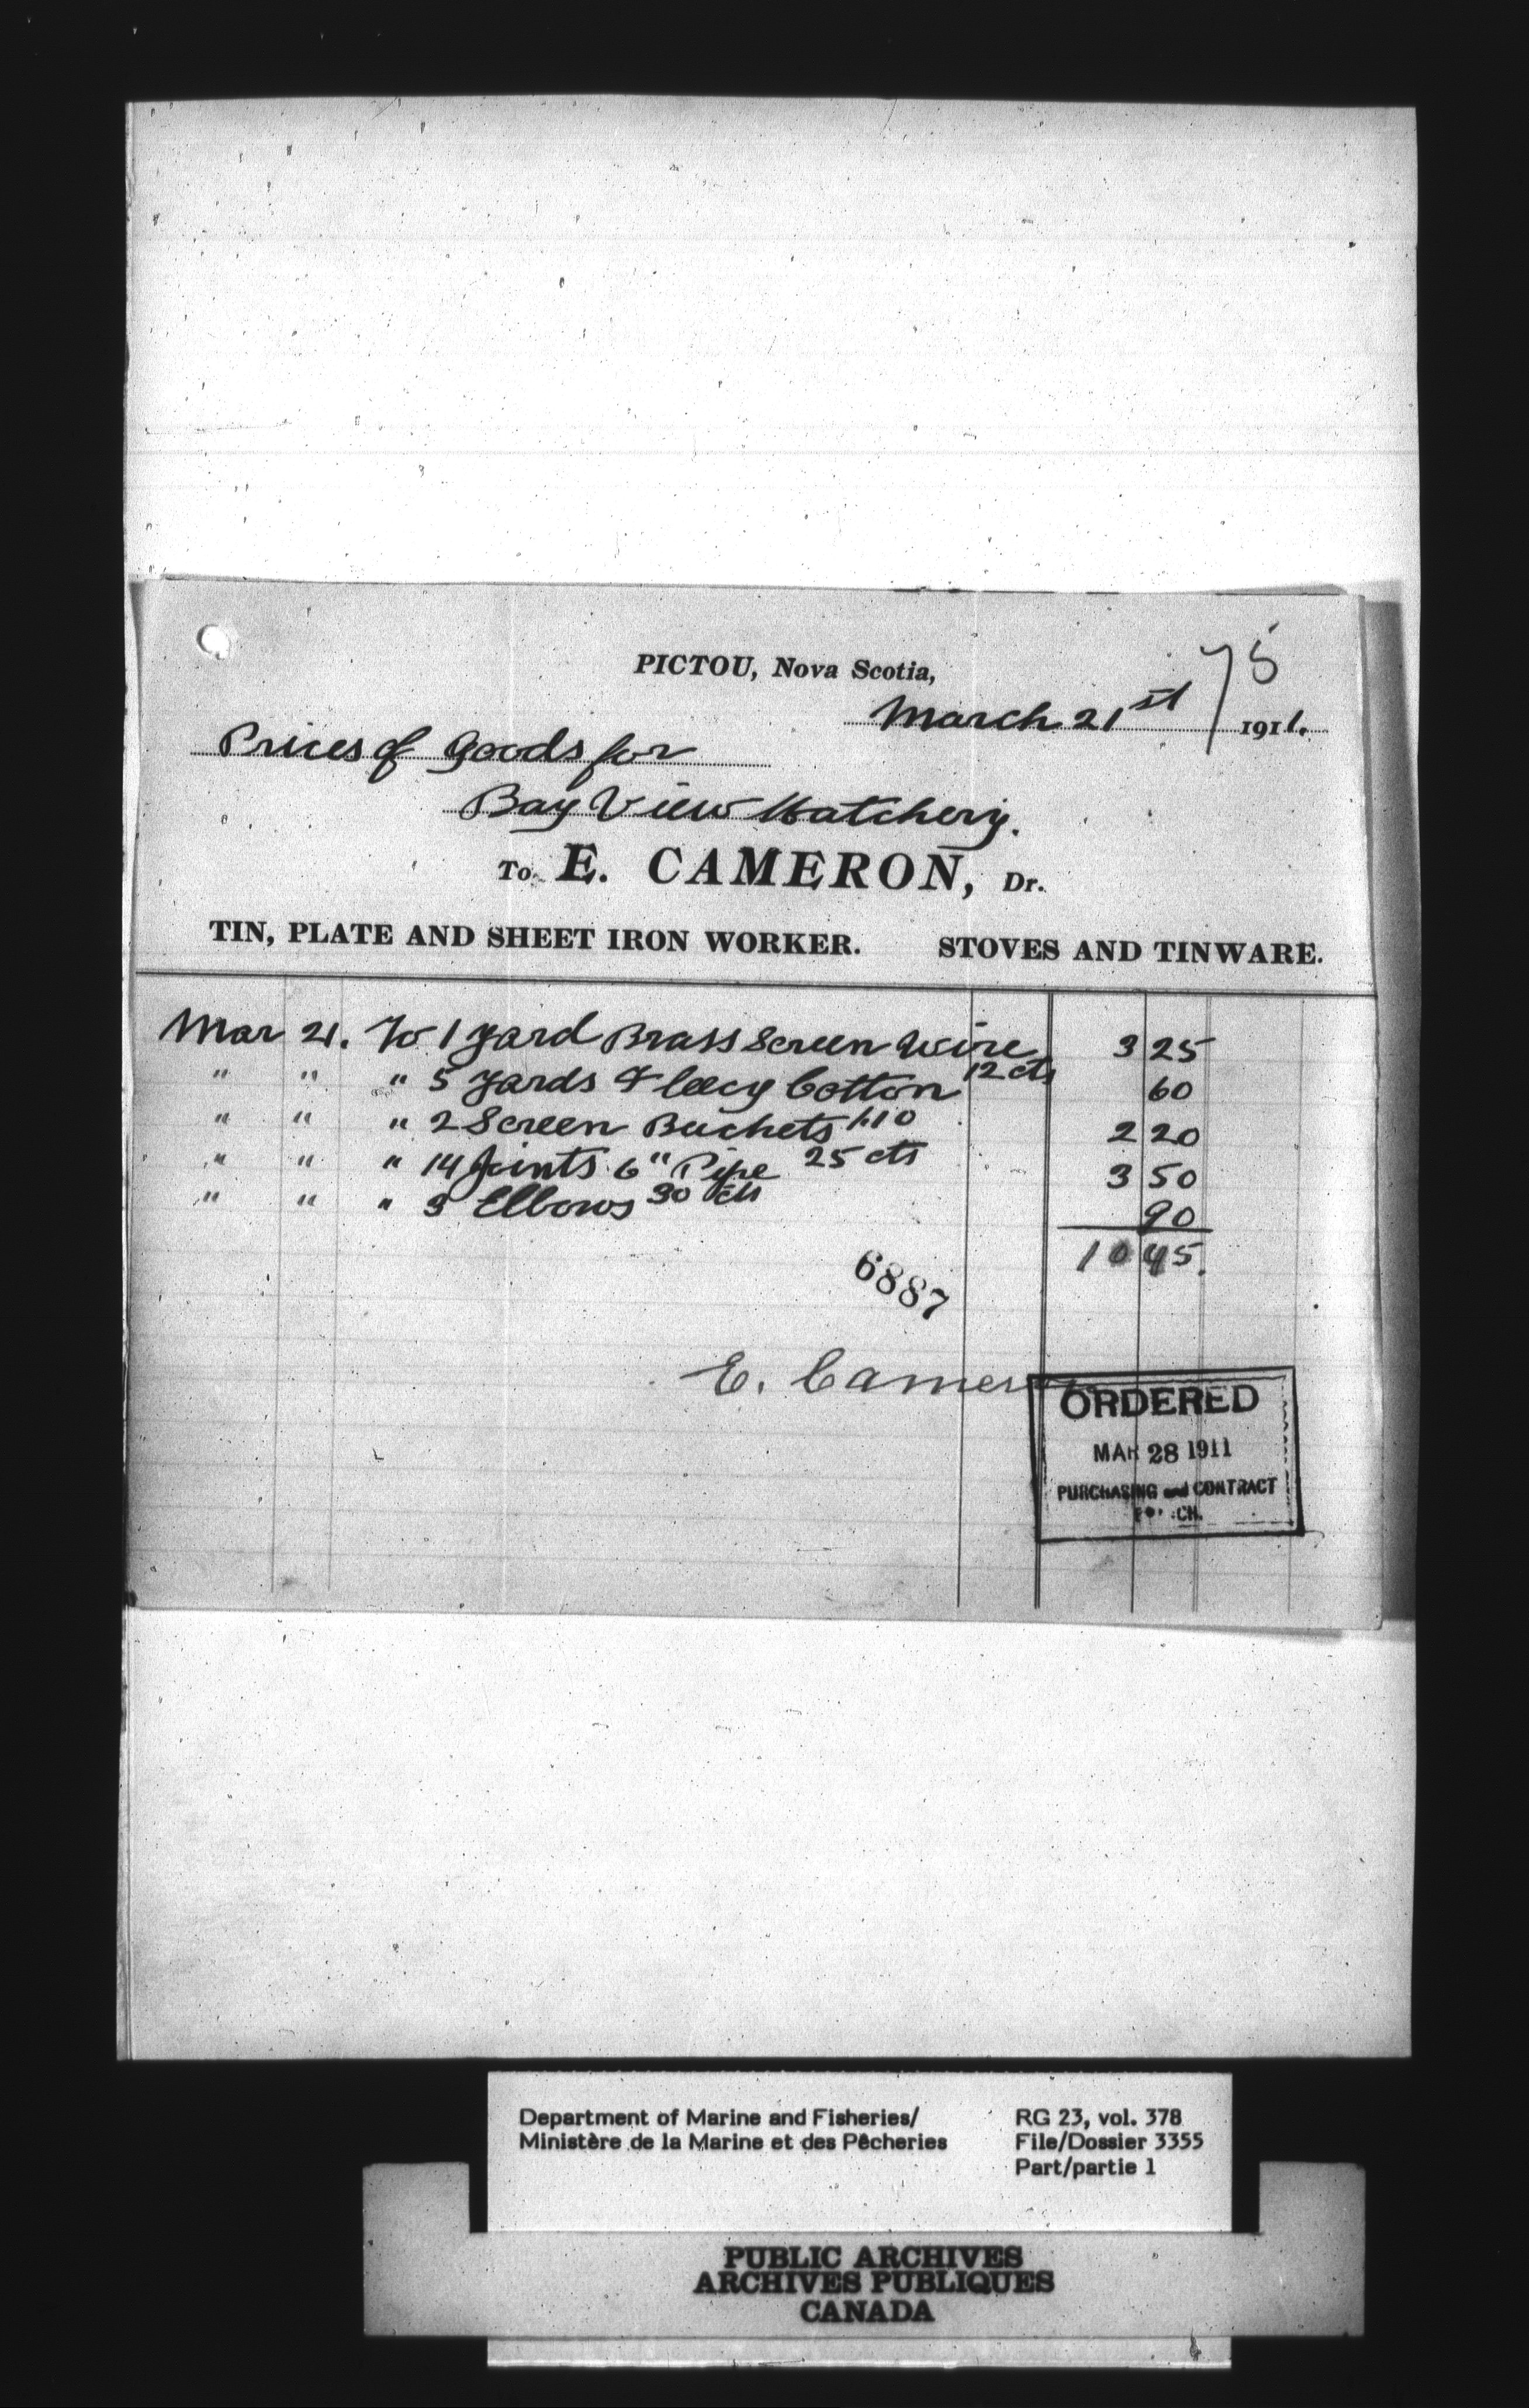 75
PICTOU, Nova Scotia,
March 21st 1911.
Prices of Goods for
Bay View Hatchery.
To E. CAMERON, Dr.
TIN, PLATE AND SHEET IRON WORKER. STOVES AND TINWARE.
Mar 21. To 1 yard Brass Screen Wire 3 25
" " " 5 yards Fleecy Cotton 12 cts 60
" " " 2 Screen Buckets 1.10 2 20
" " " 14 Joints 6" Pipe 25 cts 3 50
" " " 3 Elbows 30 cts 90
10 45.
6887
E. Cameron
ORDERED
MAR 28 1911
PURCHASING and CONTRACT
Department of Marine and Fisheries/ RG 23, vol. 378
Ministère de la Marine et des Pêcheries File/Dossier 3355
Part/partie 1
PUBLIC ARCHIVES
ARCHIVES PUBLIQUES
CANADA